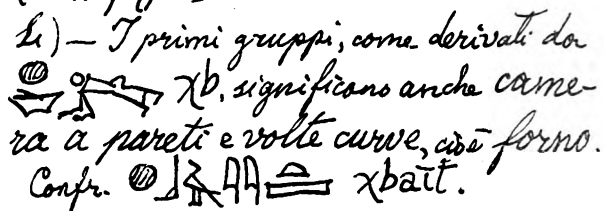 Li) — I primi gruppi, come derivati da
χb, significano anche came-
ra a pareti e volte curve, cioè forno.
Confr. χbaït.